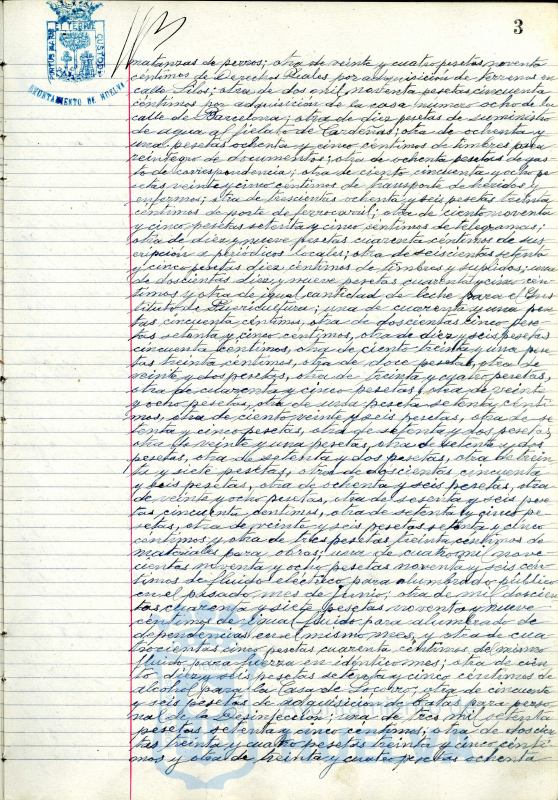 3
PORTUS MARIS ET TERRE CUSTODIA
AYUNTAMIENTO DE HUELVA
matanzas de perros; otra de veinte y cuatro pesetas noventa
céntimos de Derechos Reales por adquisición de terrenos en
calle Silos; otra de dos mil noventa pesetas cincuenta
céntimos por adquisición de la casa número ocho de la
calle de Barcelona; otra de diez pesetas de suministro
de agua al fielato de Cardeñas; otra de ochenta y
una pesetas ochenta y cinco céntimos de timbres para
reintegro de documentos; otra de ochenta pesetas de gas-
to de correspondencia; otra de ciento cincuenta y ocho pe-
setas veinte y cinco céntimos de transporte de heridos y
enfermos; otra de trescientas ochenta y seis pesetas treinta
céntimos de porte de ferrocarril; otra de ciento noventa
y cinco pesetas setenta y cinco céntimos de telegramas;
otra de diez y nueve pesetas cuarenta céntimos de sus-
cripción a periódicos locales; otra de seiscientas setenta
y cinco pesetas diez céntimos de timbres y suplidos; una
de doscientas diez y nueve pesetas cuarenta y cinco cén-
timos y otra de igual cantidad de leche para el Ins-
tituto de Puericultura; una de cuarenta y una pese-
tas cincuenta céntimos, otra de doscientas cinco pese-
tas setenta y cinco céntimos, otra de diez y seis pesetas
cincuenta céntimos, otra de ciento treinta y una pese-
tas treinta céntimos, otra de doce pesetas, otra de
veinte y dos pesetas, otra de treinta y cuatro pesetas,
otra de cuarenta y cinco pesetas, otra de veinte
y ocho pesetas, otra de una peseta setenta cénti-
mos, otra de ciento veinte y seis pesetas, otra de se-
tenta y cinco pesetas, otra de setenta y dos pesetas,
otra de veinte y una pesetas, otra de setenta y dos
pesetas, otra de setenta y dos pesetas, otra de trein-
ta y siete pesetas, otra de doscientas cincuenta
y seis pesetas, otra de ochenta y seis pesetas, otra
de veinte y ocho pesetas, otra de sesenta y seis pese-
tas cincuenta céntimos, otra de setenta y cinco pe-
setas, otra de veinte y seis pesetas setenta y cinco
céntimos y otra de tres pesetas treinta céntimos de
materiales para obras; una de cuatro mil nove-
cientas noventa y ocho pesetas noventa y seis cén-
timos de fluido eléctrico para alumbrado público
en el pasado mes de Junio; otra de mil doscien-
tas cuarenta y siete pesetas noventa y nueve
céntimos de igual fluido para alumbrado de
dependencias en el mismo mes, y otra de cua-
trocientas cinco pesetas cuarenta céntimos del mismo
fluido para fuerza en idéntico mes; otra de cien-
to diez y seis pesetas setenta y cinco céntimos de
alcohol para la Casa de Socorro; otra de cincuenta
y seis pesetas de adquisición de para perso-
nal de la Desinfección; una de tres mil setenta
pesetas setenta y cinco céntimos; otra de doscien-
tas treinta y cuatro pesetas treinta y cinco cénti-
mos y otra de treinta y cuatro pesetas ochenta